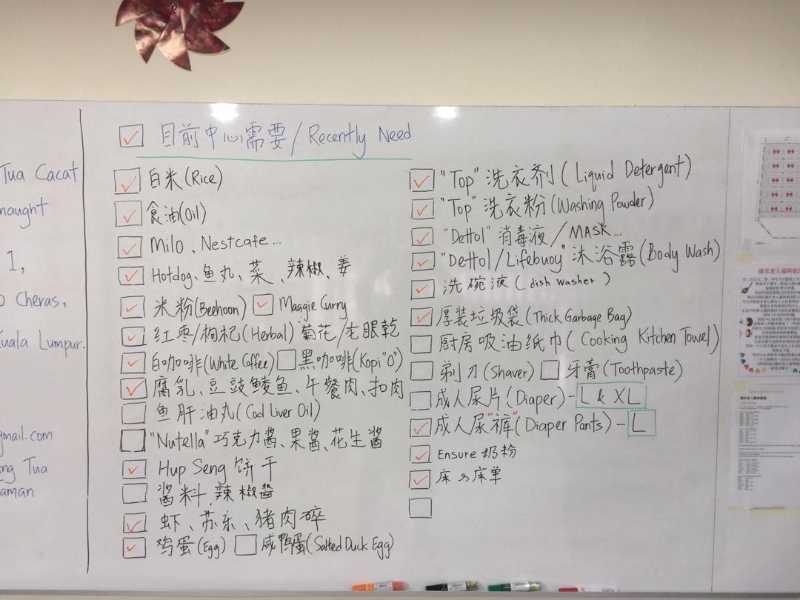 Tua Cacat
naught
1,
Cheras,
Kuala Lumpur.
gmail.com
ng Tua
aman
目前中心需要/Recently Need
白米(Rice)
食油(Oil)
Milo、Nestcafe...
Hotdog、鱼丸、菜、辣椒、姜
米粉(Beehoon) Maggie Curry
红枣/枸杞(Herbal) 菊花/龙眼乾
白咖啡(White Coffee) 黑咖啡(Kopi "O")
腐乳、豆豉鲮鱼、午餐肉、扣肉
鱼肝油丸(Cod Liver Oil)
"Nutella"巧克力酱、果酱、花生酱
Hup Seng 饼干
酱料、辣椒酱
虾、苏东、猪肉碎
鸡蛋(Egg) 咸鸭蛋(Salted Duck Egg)
"Top"洗衣剂(Liquid Detergent)
"Top"洗衣粉(Washing Powder)
"Dettol"消毒液/MASK...
"Dettol/Lifebuoy"沐浴露(Body Wash)
洗碗液(dish washer)
厚装垃圾袋(Thick Garbage Bag)
厨房吸油纸巾(Cooking Kitchen Towel)
剃刀(Shaver) 牙膏(Toothpaste)
成人尿片(Diaper)-L & XL
成人尿"裤"(Diaper Pants)-L
Ensure 奶粉
床 床单